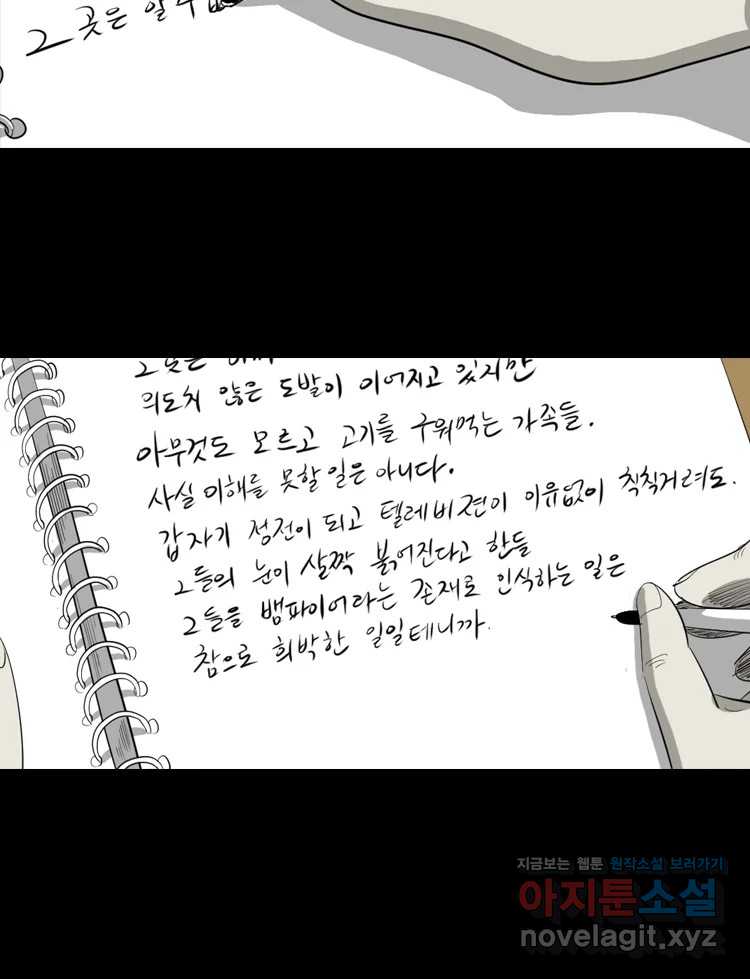 그 곳은 알 수
의도치 않은 도발이 이어지고 있지만
아무것도 모르고 고기를 구워먹는 가족들.
사실 이해를 못할 일은 아니다.
갑자기 정전이 되고 텔레비젼이 이유없이 칙칙거려도.
그들의 눈이 살짝 붉어진다고 한들
그들을 뱀파이어라는 존재로 인식하는 일은
참으로 희박한 일일테니까.
지금보는 웹툰 원작소설 보러가기
아지툰소설
novelagit.xyz